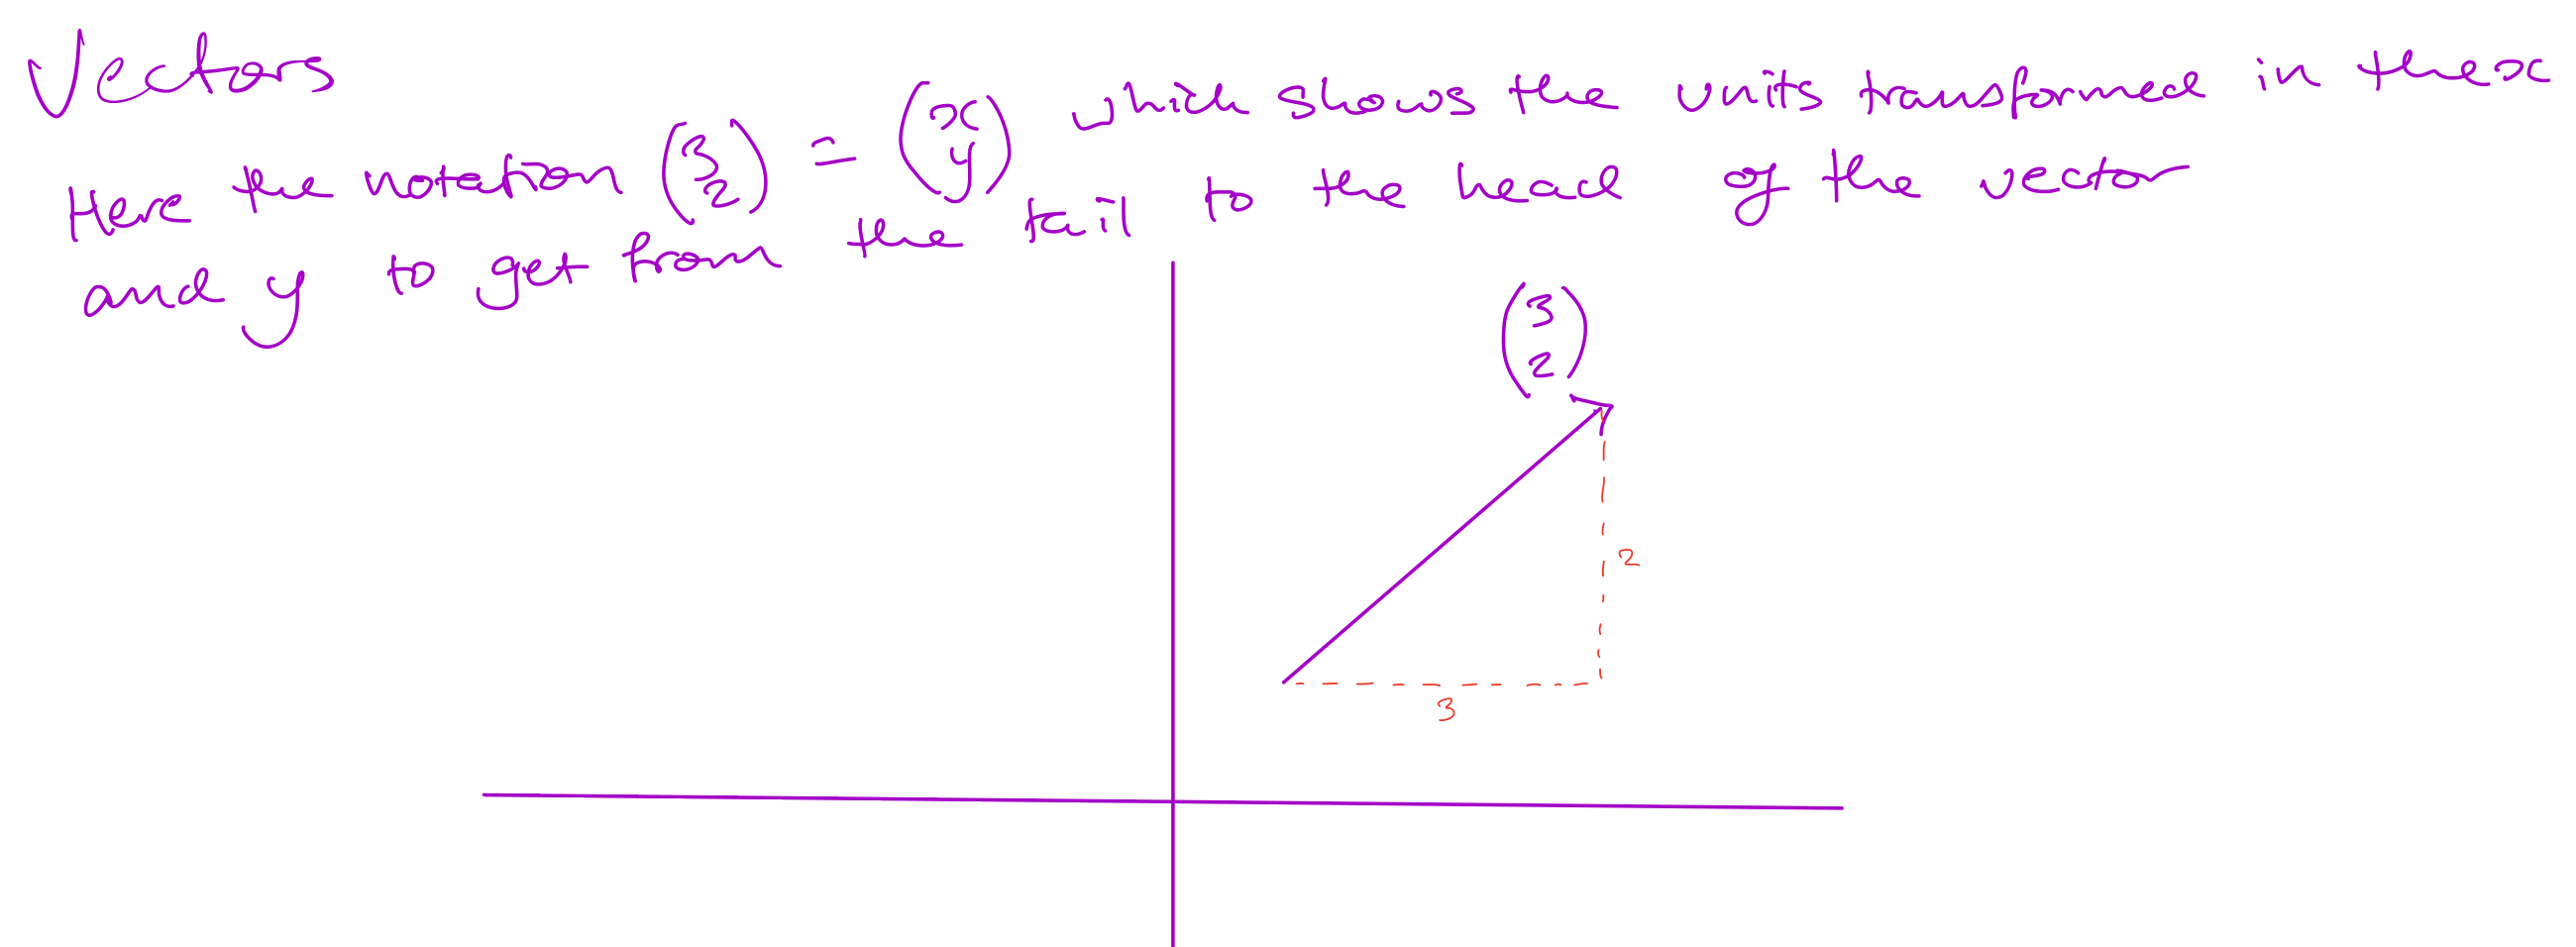 Vectors
Here the notation (3 2) = (x y) which shows the units transformed in the x
and y to get from the tail to the head of the vector
(3 2)
2
3